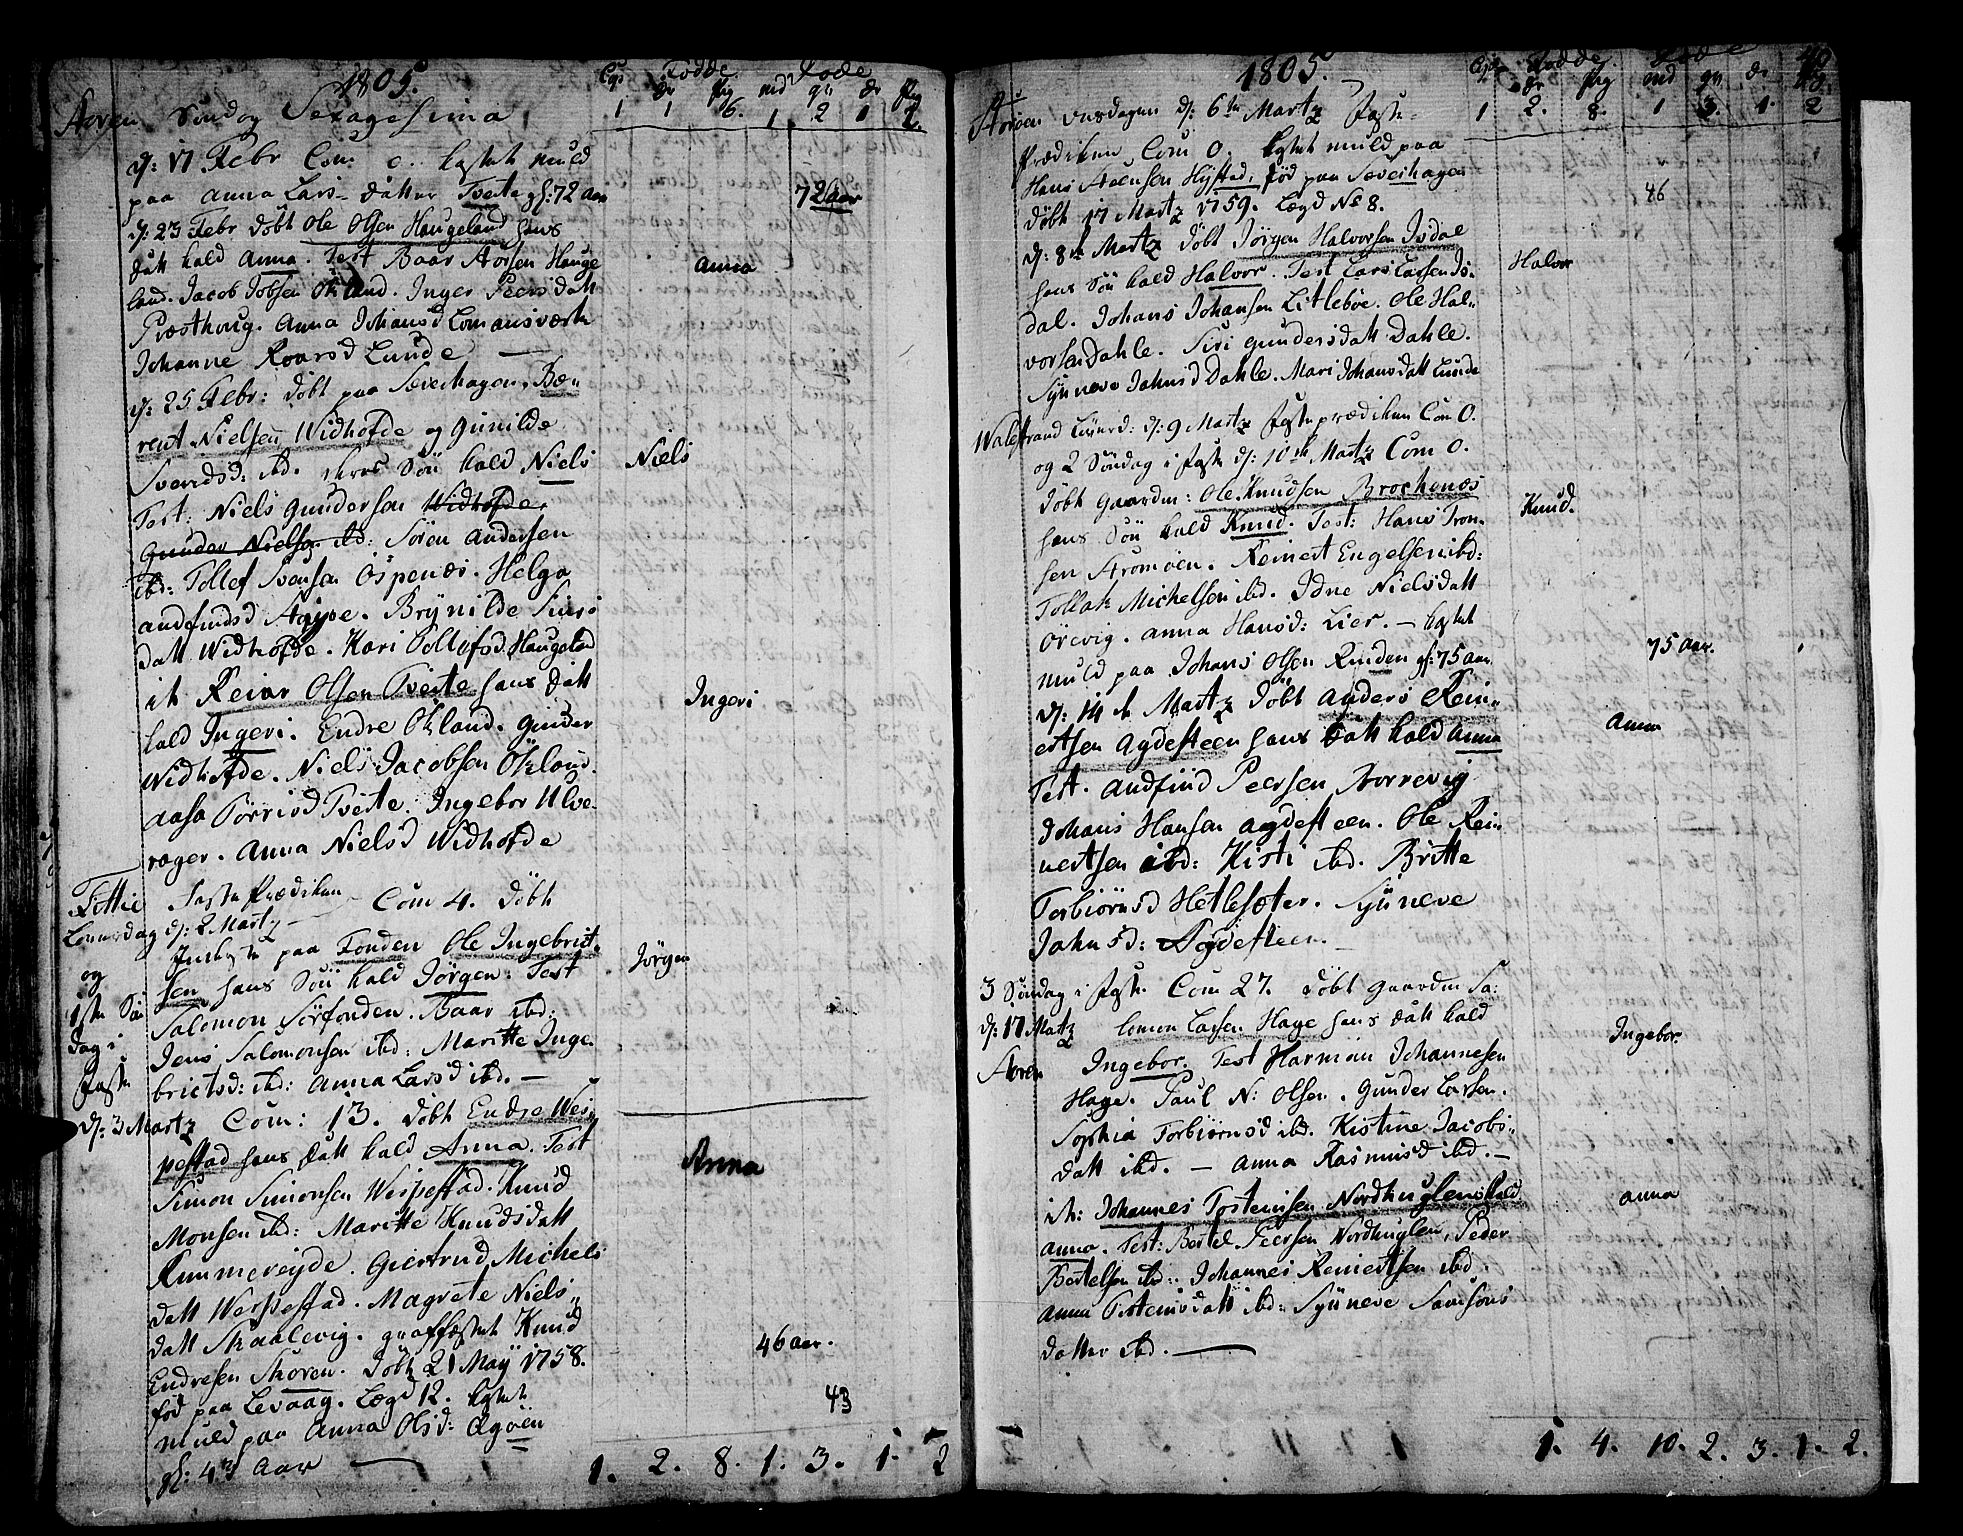 1805.
Copt Fødde. Døde
dr pig md qv dr pig
1 1 6. 1. 2 1 2.
Storen Søndag Sexagesima
d: 17 Febr Com 0. kastet muld
paa Anna Lars-datter Tveite gl: 72 aar
72 aar
d: 23 Febr. døbt Ole Olsen Haugeland hans
datt kald Anna. Test Baar Aorsen Hauge
Anna
land. Jacob Jobsen Økland. Inger Peersdatt
Præsthoug. Anna Johansd Lomansværk
Johanne Roarsd Lunde —
d: 25 Febr: døbt paa Søeihagen, Bæ„
rent Nielsen Widhofde og Gunilde
Sverdsd: ibd. Søn kald Niels
Niels
Test: Niels Gundersen Widhofde,
Gunder Nielsen. ibd: Søren Andersen
ibd: Tollef Svensen Ospenæs. Helga
Andfindsd Agije. Brynilde Siurs
datt Widhofde. Kari Tollefsd. Haugeland
it Reiar Olsen Tveite hans datt
Ingeri
kald Ingeri. Endre Økland. Gunder
Widhofde. Niels Jacobsen Økland.
Aasa Torrisd Tveite. Ingebor Ulve-
rager. Anna Nielsd Widhofde
Fittie Faste Prædiken
Com 4. døbt
Løuerdag d: 2 Martz
og
paa Fonden Ole Ingebrict-
sen hans Søn kald Jørgen. Test
Jørgen
1ste Søn
Salomon Sørfonden. Baar ibd:
dag i
Jens Salomonsen ibd: Maritte Inge-
Faste
brictsd: ibd: Anna Larsd ibd. —
d: 3 Martz Com: 13. døbt Endre Wes„
pestad hans datt kald Anna. Test
Anna
Simon Simonsen Wespestad. Knud
Monsen ibd: Maritte Knudsdatt
Rummereyde. Giertrud Michels
datt Wespestad. Magrete Niels„
datt Skaalevig. graffæstet Knud
46 aar.
Endresen Skoren. døbt 21 May 1758.
fød paa Levaag. Lægd 12. kastet
43
muld paa Anna Olsd: Ægøen
gl: 43 Aar —
1. 2. 8. 1. 3. 1. 2
1805.
Fødde. Døde
dr pig md qv dr pig
1 2. 8. 1 3. 1. 2
Storen onsdagen d: 6te Martz Faste-
Prædiken Com 0. kastet muld paa
Hans Steensen Hystad, fød paa Søeihagen
46
døbt 17 Martz 1759. Lægd No 8.
d: 8de Martz døbt Jørgen Halvorsen Isdal
hans Søn kald Halvor. Test Lars Larsen Is-
Halvor
dal. Johans Johansen Litleböe. Ole Hal„
vorsen Dahle. Siri Gundersdatt Dahle.
Synneve Jahnsd Dahle. Mari Johansdatt Lunde
Walestrand Løuerd: d: 9 Martz Faste prædiken Com 0.
og 2 Søndag i Faste d: 10de Martz Com 0.
døbt Gaardm: Ole Knudsen Brochenæs
Knud.
hans Søn kald Knud. Test: Hans Tron-
sen Strømøen. Reinert Engelsen ibd:
Tollak Michelsen ibd. Idne Nielsdatt
Orevig. Anna Hansd: Lier. — kastet
75 Aar.
muld paa Johans Olsen Rinden gl: 75 aar
d: 14de Martz døbt Anders Rein„
Anna
ertsen Agdesteen hans datt kald Anna
Test. Andfind Peersen Borrevig
Johans Hansen Agdesteen. Ole Rei-
nertsen ibd: Kisti ibd. Britte
Torbiørnsd Hetlesæter. Synneve
Jahnsd: Agdesteen. —
3 Søndag i Faste Com 27. døbt Gaardm Sa:
d: 17 Martz lomon Larsen Hage hans datt kald
Ingebor.
Storen Ingebor. Test Harman Johannesen
Hage. Paul N: Olsen. Gunder Larsen.
Sophia Torbiørnsd ibd. Kistine Jacobs„
datt ibd. — Anna Rasmusd ibd. —
Anna
it: Johannes Tosteinsen Nordhuglen kald
Anna. Test: Bertel Peersen Nordhuglen, Peder
Bertelsen ibd: Johannes Reinertsen ibd.
Anna Tosteinsdatt ibd: Synneve Samsons
datter ibd. —
1. 4. 10. 2. 3. 1. 2.